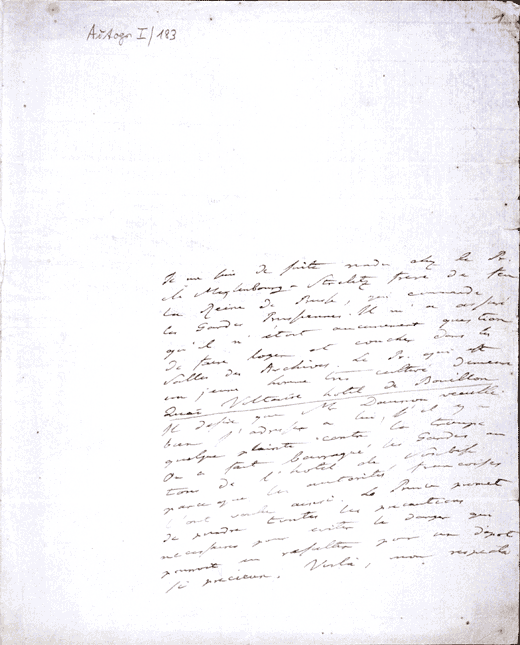 Autogr I/183
1
Je me suis de suite rendu chez le Pr.
de Meklenbourg-Strelitz frere de feu
la Reine de Prusse, qui commande
les Gardes Prussiennes. Il m'a assuré
qu'il n'étoit aucunement question
de faire loger et coucher dans les
Salles des Archives. Le Pr. qui est
un jeune homme très cultivé demeure
Quai Voltaire hotel de Bouillon.
Il desire que M. Daunou veuille
bien s'adresser a lui, s'il y a
quelque plainte contre la troupe
On a fait les Gardes au
de l'hotel de
parceque les autorités françoises
l'ont voulu ainsi. Le Prince promet
de prendre toutes les précautions
necessaires pour eviter le danger qui
pourroit en resulter pour un dépot
si precieux. Voilà, mon respectable